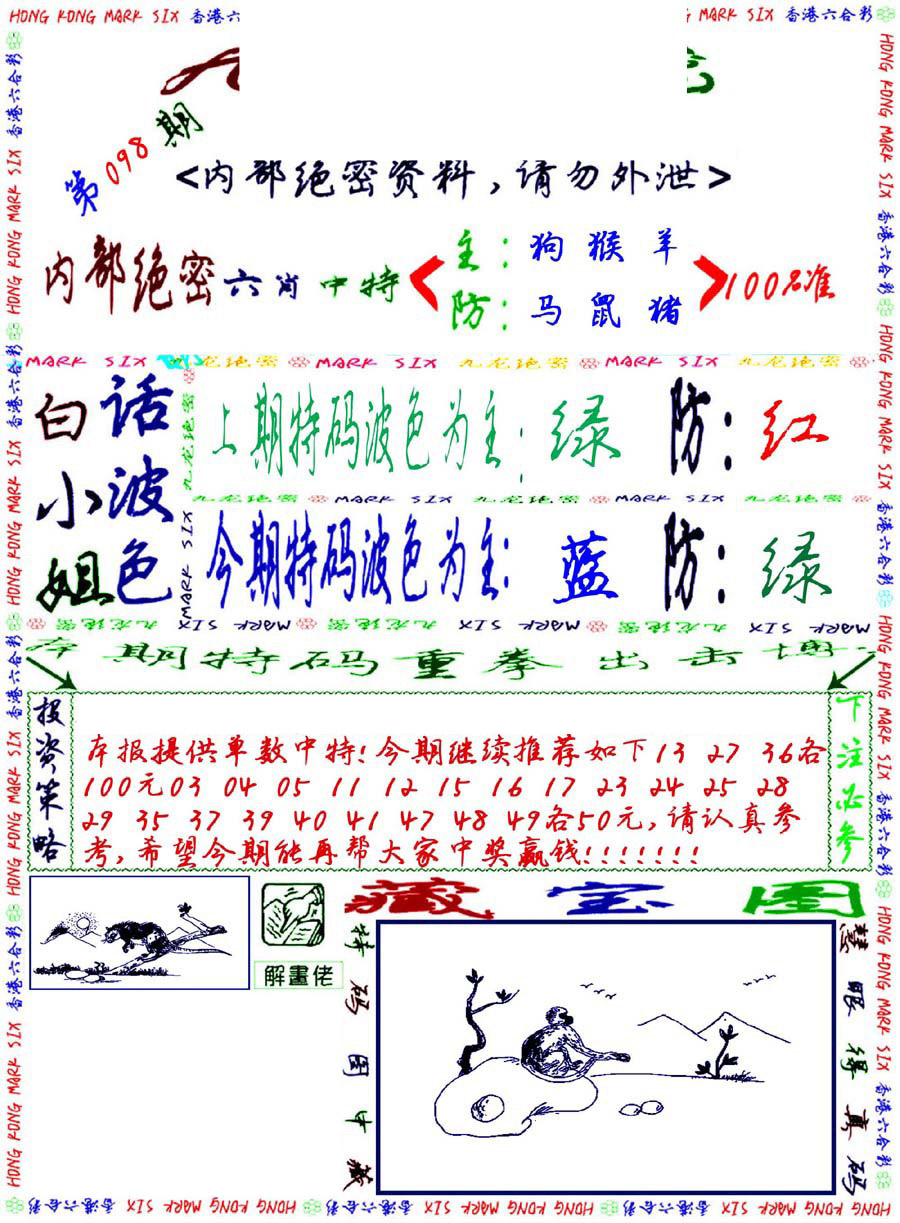 HONG KONG MARK SIX 香港六合彩
MARK SIX 香港六合彩
第098期
<内部绝密资料,请勿外泄>
内部绝密六肖中特
主:狗猴羊
防:马鼠猪
100%准
MARK SIX 九龙绝密 MARK SIX 九龙绝密 MARK SIX 九龙绝密
白小姐
话波色
上期特码波色为主:绿 防:红
九龙绝密 MARK SIX 九龙绝密 MARK SIX 九龙绝密
今期特码波色为主:蓝 防:绿
MARK SIX 九龙绝密 MARK SIX 九龙绝密 MARK SIX 九龙绝密
期特码重拳出击
投资策略
本报提供单数中特!今期继续推荐如下13 27 36各
100元03 04 05 11 12 15 16 17 23 24 25 28
29 35 37 39 40 41 47 48 49各50元,请认真参
考,希望今期能再帮大家中奖赢钱!!!!!!!
下注必参
解畫佬
藏宝图
特码图中藏
慧眼得真码
HONG KONG MARK SIX 香港六合彩 HONG KONG MARK SIX 香港六合彩 HONG KONG MARK SIX 香港六合彩